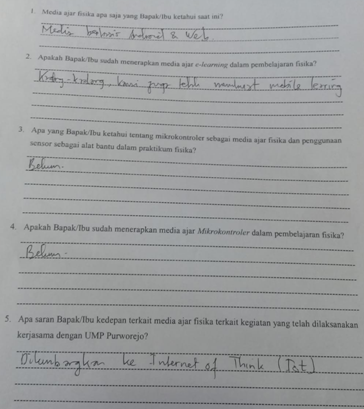 1. Media ajar fisika apa saja yang Bapak/Ibu ketahui saat ini?
Media berbasis Android & Web.
2. Apakah Bapak/Ibu sudah menerapkan media ajar e-learning dalam pembelajaran fisika?
Kadang-kadang, kami juga telah membuat mobile lerning
3. Apa yang Bapak/Ibu ketahui tentang mikrokontroler sebagai media ajar fisika dan penggunaan
sensor sebagai alat bantu dalam praktikum fisika?
Belum.
4. Apakah Bapak/Ibu sudah menerapkan media ajar Mikrokontroler dalam pembelajaran fisika?
Belum.
5. Apa saran Bapak/Ibu kedepan terkait media ajar fisika terkait kegiatan yang telah dilaksanakan
kerjasama dengan UMP Purworejo?
Dikembangkan ke Internet of Think (Iot)